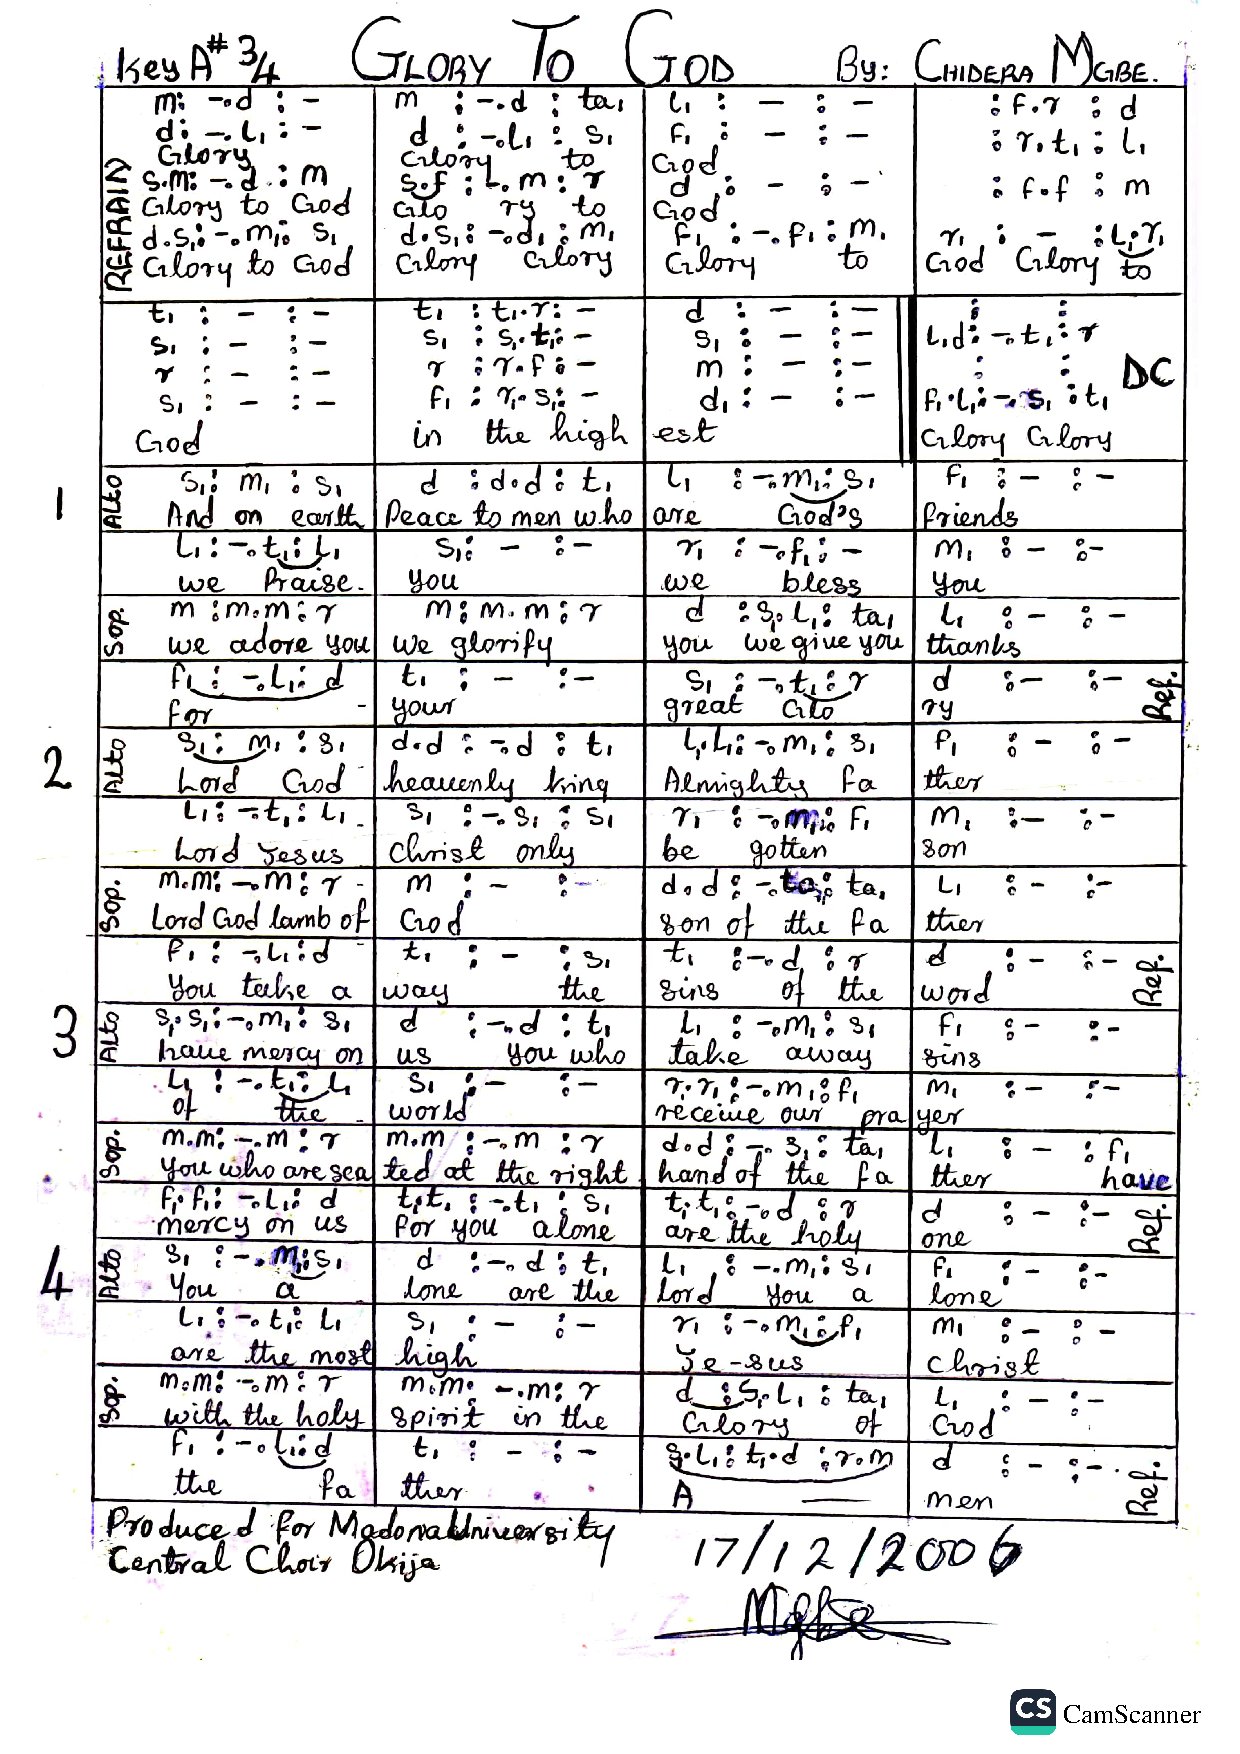 Key A# 3/4 GLORY TO GOD By: CHIDERA MGBE.
REFRAIN
m: -.d : - m : -.d : ta₁ l₁ : - : - : f.r : d
d: -.l₁ : - d : -.l₁ : s₁ f₁ : - : - : r.t₁ : l₁
Glory Glory to God
s.m: -.d : m s.f : l.m : r d : - : - : f.f : m
Glory to God Glo ry to God
d.s₁: -.m₁: s₁ d.s₁: -.d₁ : m₁ f₁ : -.f₁ : m₁ r₁ : - : l₁.r₁
Glory to God Glory Glory Glory to God Glory to
t₁ : - : - t₁ : t₁.r : - d : - : - : :
s₁ : - : - s₁ : s₁.t₁: - s₁ : - : - l₁.d: -.t₁ : r
r : - : - r : r.f : - m : - : - : : DC
s₁ : - : - f₁ : r₁.s₁: - d₁ : - : - f₁.l₁: -.s₁ : t₁
God in the high est Glory Glory
1 Alto s₁: m₁ : s₁ d : d.d : t₁ l₁ : -.m₁: s₁ f₁ : - : -
And on earth Peace to men who are God's friends
l₁ : -.t₁: l₁ s₁: - : - r₁ : -.f₁: - m₁ : - : -
we Praise. you we bless you
Sop. m : m.m : r m: m.m : r d : s₁.l₁: ta₁ l₁ : - : -
we adore you we glorify you we give you thanks
f₁ : -.l₁: d t₁ : - : - s₁ : -.t₁ : r d : - : - Ref.
for - your great Glo ry
2 Alto s₁: m₁ : s₁ d.d : -.d : t₁ l₁.l₁: -.m₁ : s₁ f₁ : - : -
Lord God heavenly king Almighty fa ther
l₁: -.t₁ : l₁. s₁ : -.s₁ : s₁ r₁ : -.m₁: f₁ m₁ : - : -
Lord Jesus Christ only be gotten son
Sop. m.m: -.m : r - m : - : - d.d : -.ta₁: ta₁ l₁ : - : -
Lord God lamb of God son of the fa ther
f₁ : -.l₁: d t₁ : - : s₁ t₁ : -.d : r d : - : - Ref.
You take a way the sins of the word
3 Alto s₁.s₁: -.m₁: s₁ d : -.d : t₁ l₁ : -.m₁: s₁ f₁ : - : -
have mercy on us you who take away sins
l₁ : -.t₁: l₁ s₁ : - : - r₁.r₁ : -.m₁: f₁ m₁ : - : -
of the world receive our pra yer
Sop. m.m: -.m : r m.m : -.m : r d.d : -.s₁: ta₁ l₁ : - : f₁
You who are sea ted at the right hand of the fa ther have
f₁.f₁: -.l₁: d t₁.t₁ : -.t₁ : s₁ t₁.t₁: -.d : r d : - : - Ref.
mercy on us For you alone are the holy one
4 Alto s₁ : -.m₁: s₁ d : -.d : t₁ l₁ : -.m₁: s₁ f₁ : - : -
You a lone are the lord you a lone
l₁: -.t₁: l₁ s₁ : - : - r₁ : -.m₁: f₁ m₁ : - : -
are the most high Je-sus Christ
Sop. m.m: -.m : r m.m: -.m: r d : s₁.l₁ : ta₁ l₁ : - : -
with the holy spirit in the Glory of God
f₁ : -.l₁: d t₁ : - : - s₁.l₁: t₁.d : r.m d : - : - . Ref.
the fa ther A — men
Produced for Madona University 17/12/2006
Central Choir Okija
Mgbe
CS CamScanner